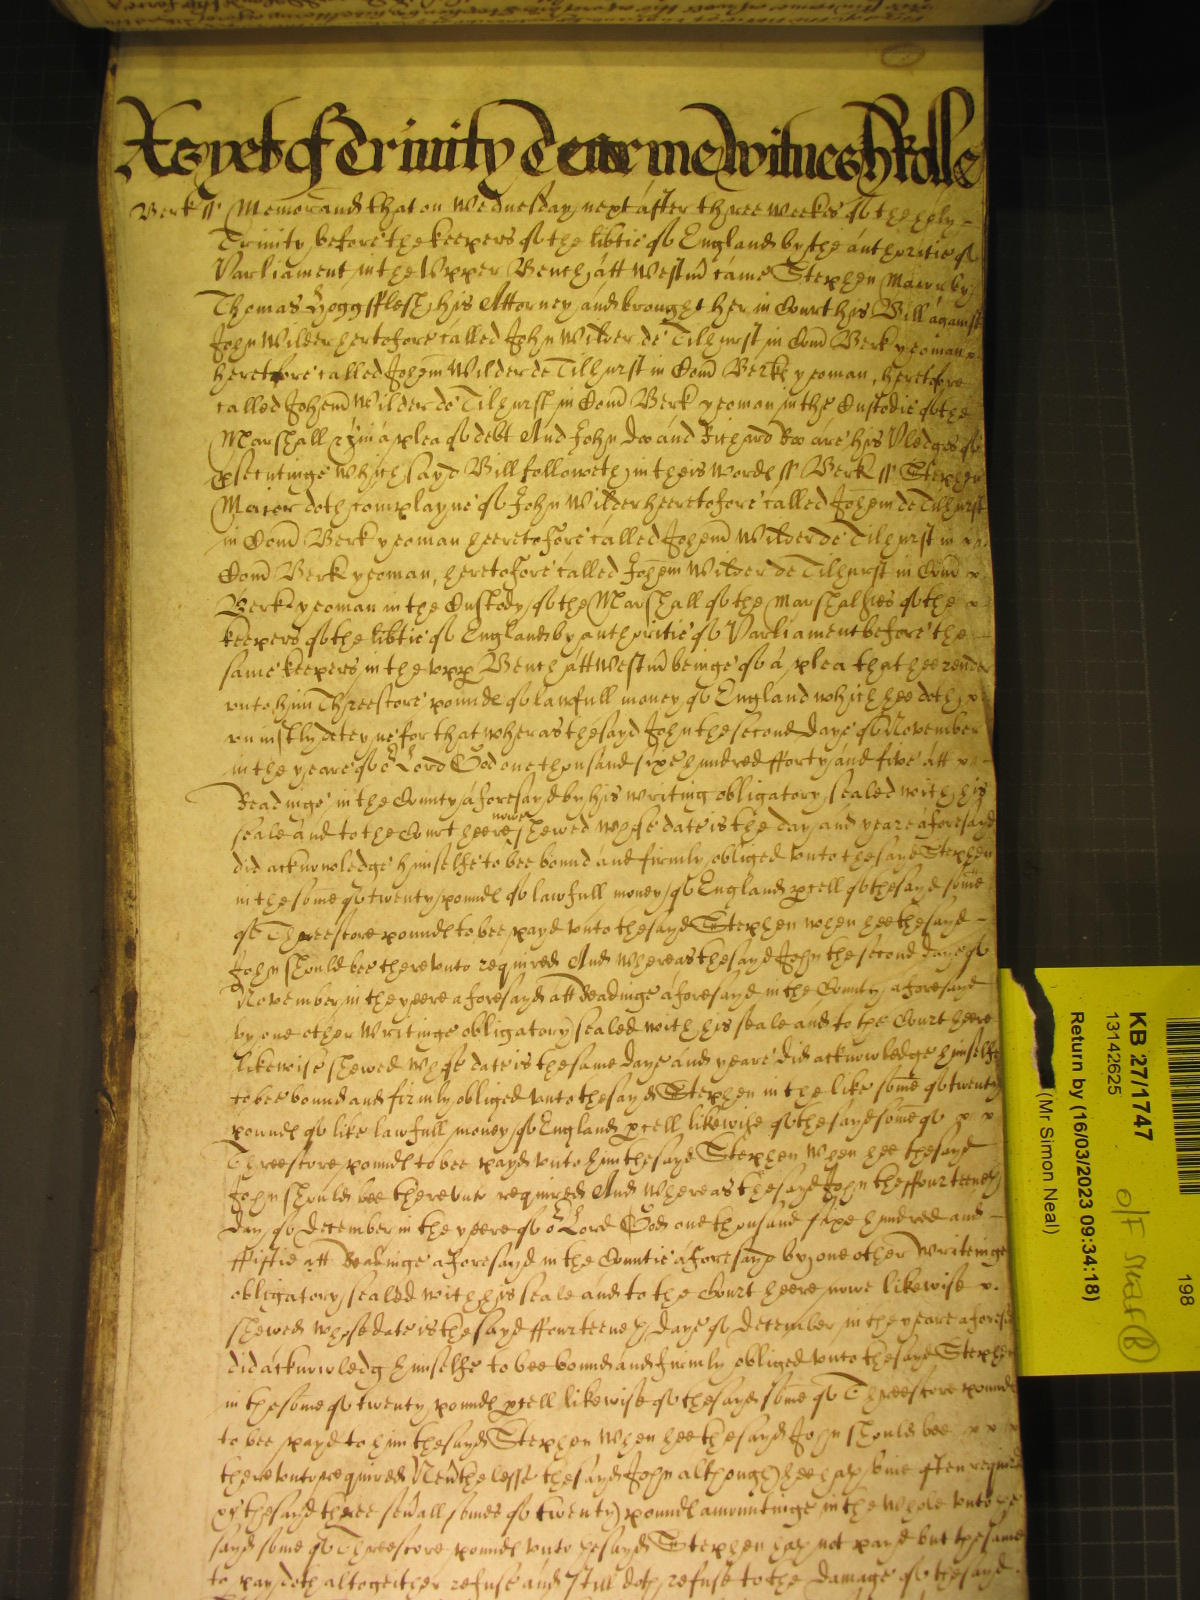 As yet of Trinity Tearme Witnes H Rolle
Berk ss Memorand that on Wednesday next after three weekes of the holy
Trinity before the keepers of the libtie of England by the authoritie of
Parliament in the Upper Bench att Westm came Stephen Maior by
Thomas Hoggsflesh his Attorney and brought her in Court his Bill against
John Wilder hertofore called John Wilder de Tilhurst in Com Berk yeoman
heretofore called Johem Wilder de Tilhurst in Com Berk yeoman, heretofore
called Johem Wilder de Tilhurst in Com Berk yeoman in the Custodie of the
Marshall &c in a plea of debt And John Doo and Richard Roo are his Pledges of
psecutinge Which sayd Bill followeth in theis Wordes ss Berk ss Stephen
Maior doth complayne of John Wilder heeretofore called Johem de Tilhurst
in Com Berk yeoman heeretofore called Johem Wilder de Tilhurst in
Com Berk yeoman, heretofore called Johem Wilder de Tilhurst in Com
Berk yeoman in the Custody of the Marshall of the Marshalsies of the
keepers of the libtie of England by authoritie of Parliament before the
same keepers in the upp Bench att Westm beinge of a plea that hee render
unto him Threescore pounds of lawfull money of England which hee doth
uniustly deteyne for that wheras the sayd John the second daye of November
in the yeare of or Lord God one thousand sixe hundred fforty and five att
Readinge in the County aforesayd by his writing obligatory sealed with his
seale and to the Court heere nowe shewed whose date is the day and yeare aforesayd
did acknowledge himselfe to bee bound and firmly obliged unto the sayd Stephen
in the some of twenty pounds of lawfull money of England pcell of the sayd some
of Threescore pounds to bee payd unto the sayd Stephen when hee the sayd
John should bee thereunto required And whereas the sayd John the second daye of
November in the yeere aforesayd att Readinge aforesayd in the County aforesayd
by one other Writinge obligatory sealed with his seale and to the Court heere
likewise shewed whose date is the same daye and yeare did acknowledge himselfe
to bee bound and firmly obliged unto the sayd Stephen in the like some of twenty
pounds of like lawfull money of England pcell likewise of the sayd some of
Threescore pounds to bee payd unto him the sayd Stephen When hee the sayd
John should bee thereunto required And whereas the sayd John the ffourteenth
day of December in the yeere of or Lord God one thousand sixe hundred and
ffiftie att Readinge aforesayd in the Countie aforesayd by one other Writeinge
obligatory sealed with his seale and to the Court heere nowe likewise
shewed whose date is the sayd ffourteenth daye of December in the yeare aforesd
did acknowledg himselfe to bee bound and firmly obliged unto the sayd Stephen
in the some of twenty pounds pcell likewise of the sayd some of Threescore pounds
to bee payd to him the sayd Stephen When hee the sayd John should bee
thereunto required Nevtheless the sayd John although hee hath some often required
of the sayd three sevall somes of twenty pounds amountinge in the whole unto the
sayd some of Threescore pounds unto the sayd Stephen hath not payd but the same
to pay doth altogeither refuse and still doth refuse to the damage of the sayd
KB 27/1747
13142625
Return by (16/03/2023 09:34:18)
(Mr Simon Neal)
198